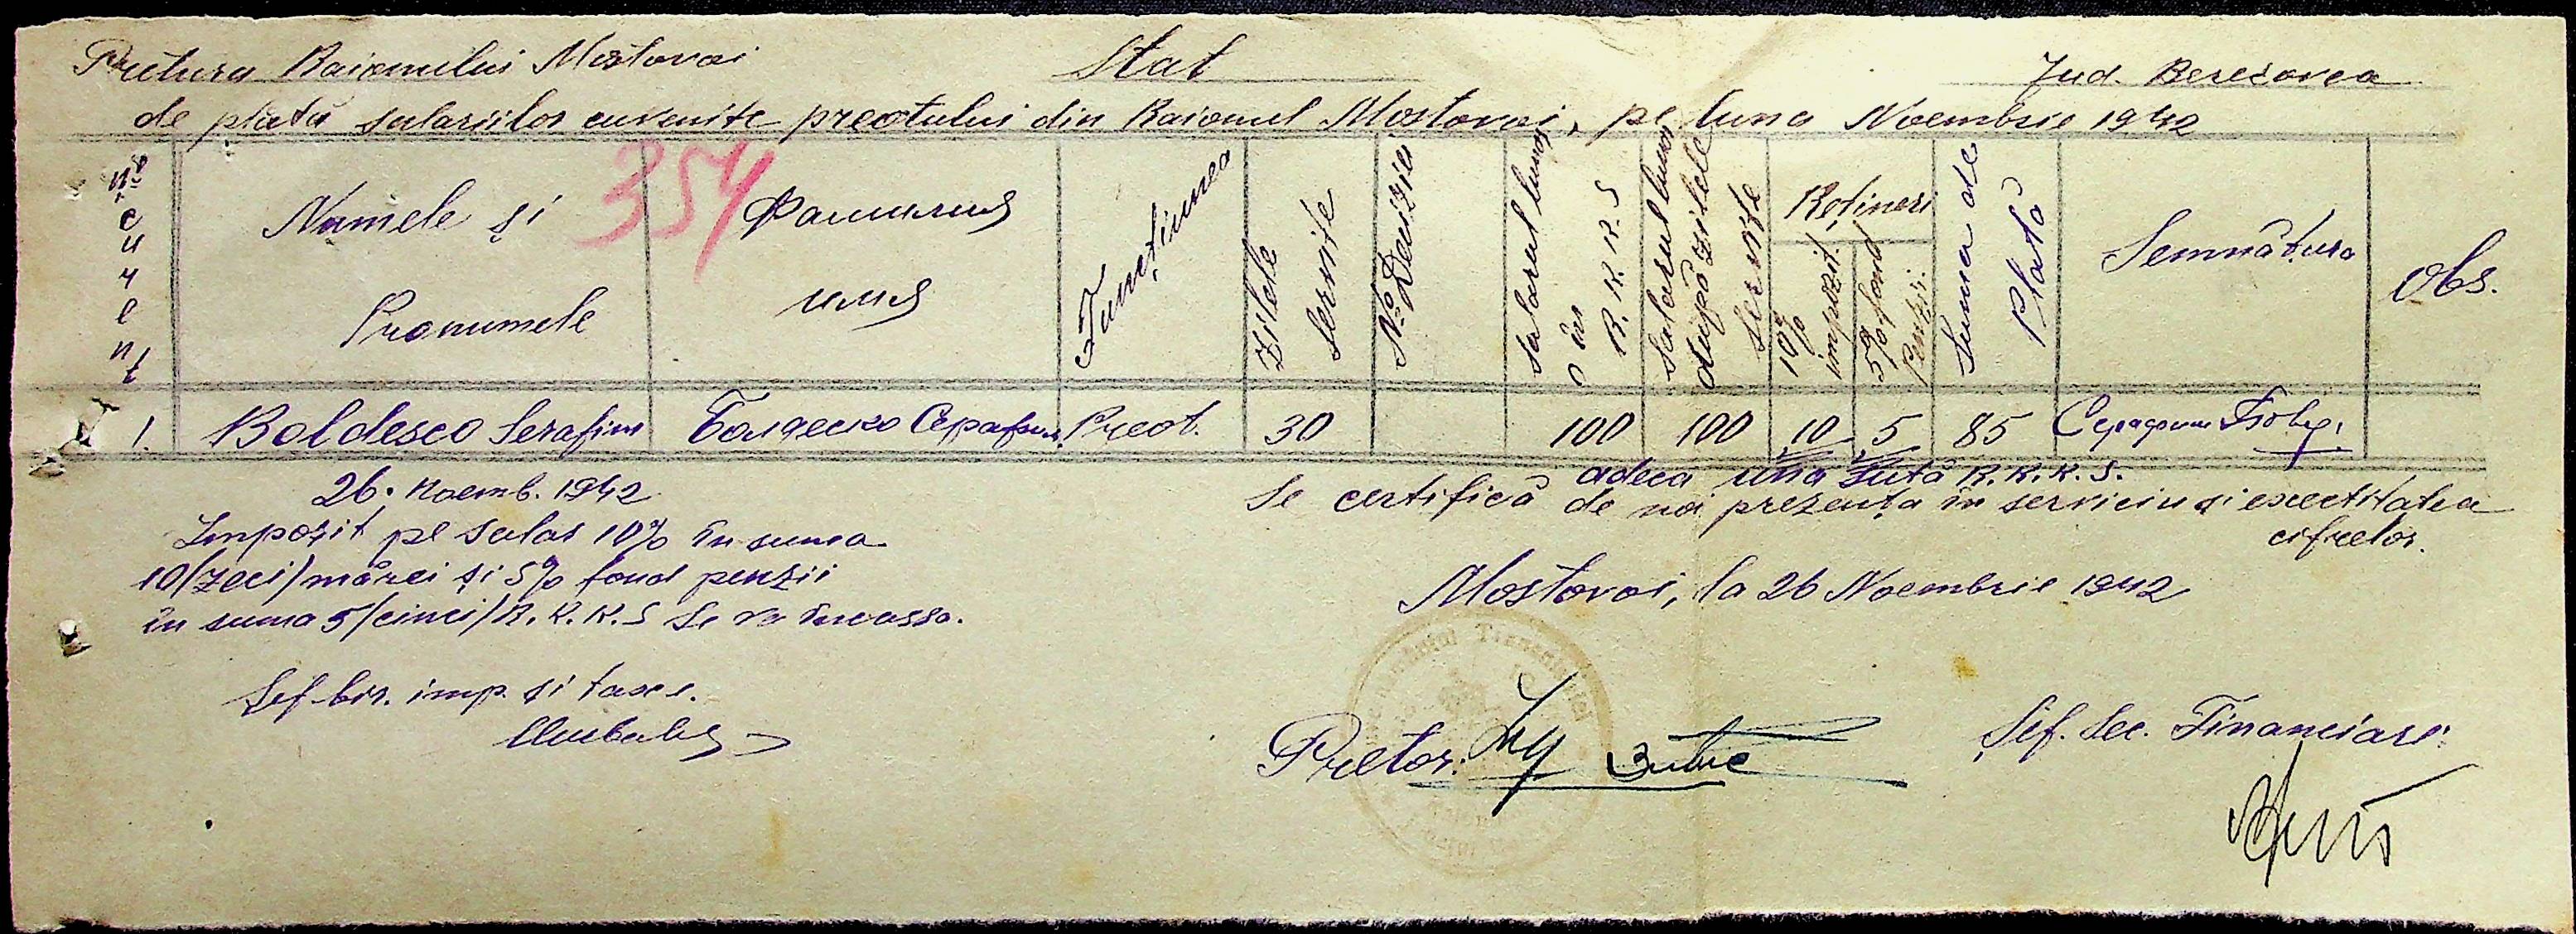 Pretura Raionului Mostovoi
Stat
Jud. Berezovca
de plată salariilor cuvenite preotului din Raionul Mostovoi, pe luna Noembrie 1942
354
№ curent
Numele și
Pronumele
Фамилия
имя
Funcțiunea
Zilele
servite
№ Deciziei
Salarul lunar
în
R.K.K.S
Salarul lunar
după zilele
servite
Rețineri
10%
impozit
5% fond
Penzii
Suma de
Plată
Semnătura
Obs.
1. Boldesco Serafim Болдеско Серафим Preot. 30 100 100 10 5 85 Серафим
adeca una sută R.K.K.S.
26. Noemb. 1942
Impozit pe salar 10% în suma
10/zeci/mărci și 5% fond penzii
în suma 5/cinci/R.K.K.S se va încassa.
Șef bir. imp. și taxe.
Se certifică de noi prezența în serviciu și exectitatea
cifrelor.
Mostovoi, la 26 Noembrie 1942
Pretor:
Șef. Sec. Financiare: